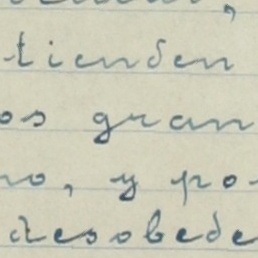 tienden
os gran
no, y po-
desobede